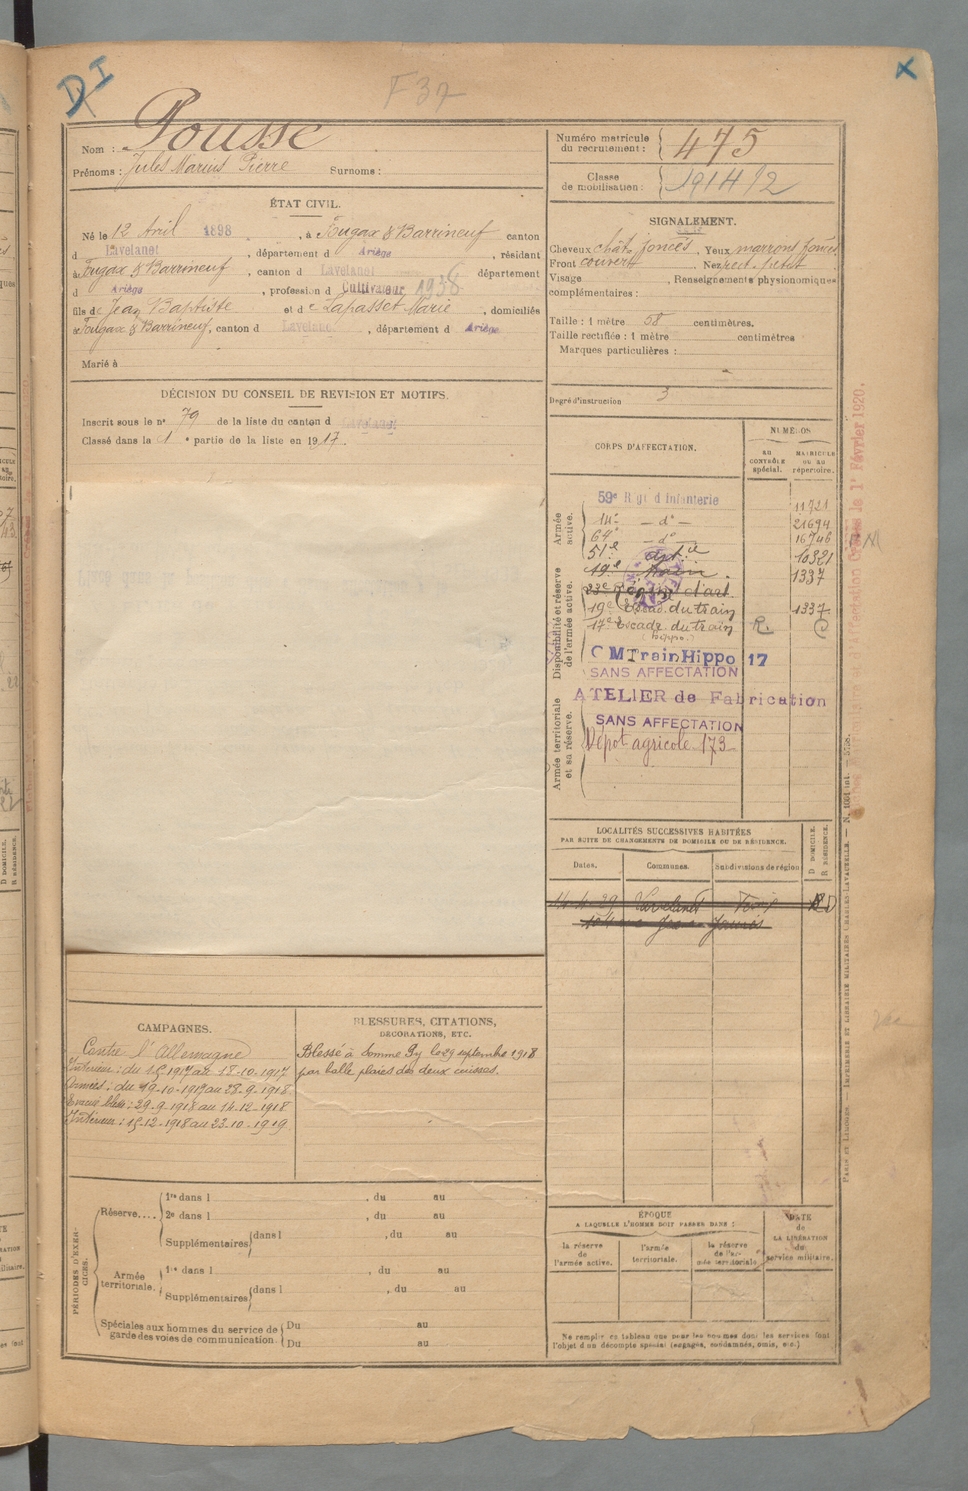 D I
F 37
X
Nom : Pousse
Prénoms : Jules Marius Pierre Surnoms :
Numéro matricule du recrutement : 475
Classe de mobilisation : 1914/2
ÉTAT CIVIL.
Né le 12 Avril 1898, à Fougax & Barrineuf canton
d Lavelanet, département d Ariège, résidant
à Fougax & Barrineuf, canton d Lavelanet département
d Ariège, profession d Cultivateur 1938
fils de Jean Baptiste et de Lapasset Marie, domiciliés
à Fougax & Barrineuf, canton d Lavelanet, département d Ariège
Marié à
SIGNALEMENT.
Cheveux chât. foncés, Yeux marrons foncés
Front couvert, Nez rect. petit
Visage , Renseignements physionomiques
complémentaires :
Taille : 1 mètre 58 centimètres.
Taille rectifiée : 1 mètre centimètres
Marques particulières :
Degré d'instruction 3
DÉCISION DU CONSEIL DE REVISION ET MOTIFS.
Inscrit sous le n° 79 de la liste du canton d Lavelanet
Classé dans la 1e partie de la liste en 1917.
CORPS D'AFFECTATION.
NUMÉROS
AU CONTRÔLE spécial.
MATRICULE OU AU répertoire.
Armée active.
59e Rgt d Infanterie 11721
14e — d° — 21694
64e — d° — 16746
51e art ie 10321
19e train. 1337
Disponibilité et réserve de l'armée active.
23e Régim d'art.
19e Escad. du train 1337
17e Escadr. du train R.
C M Train Hippo 17
SANS AFFECTATION
ATELIER de Fabrication
Armée territoriale et sa réserve.
SANS AFFECTATION
Dépôt agricole 173
LOCALITÉS SUCCESSIVES HABITÉES
PAR SUITE DE CHANGEMENTS DE DOMICILE OU DE RÉSIDENCE.
Dates. Communes. Subdivisions de région D DOMICILE. R RÉSIDENCE.
14-4-29 Lavelanet Foix
Jaurès
CAMPAGNES.
Contre l'Allemagne
Intérieur : du 15 1917 au 18-10-1917
Armées : du 19-10-1917 au 28-9-1918
Intérieur : 15-12-1918 au 23-10-1919
BLESSURES, CITATIONS,
DÉCORATIONS, ETC.
Blessé à Somme Py le 29 septembre 1918
par balle plaies des deux cuisses.
PÉRIODES D'EXERCICES.
Réserve.... 1re dans l , du au
2e dans l , du au
Supplémentaires dans l , du au
Armée territoriale. 1re dans l , du au
Supplémentaires dans l , du au
Spéciales aux hommes du service de garde des voies de communication. Du au
Du au
ÉPOQUE
A LAQUELLE L'HOMME DOIT PASSER DANS :
la réserve de l'armée active.
l'armée territoriale.
la réserve de l'armée territoriale
DATE de LA LIBÉRATION du service militaire.
Ne remplir ce tableau que pour les hommes dont les services font
l'objet d'un décompte spécial (engagés, condamnés, omis, etc.)